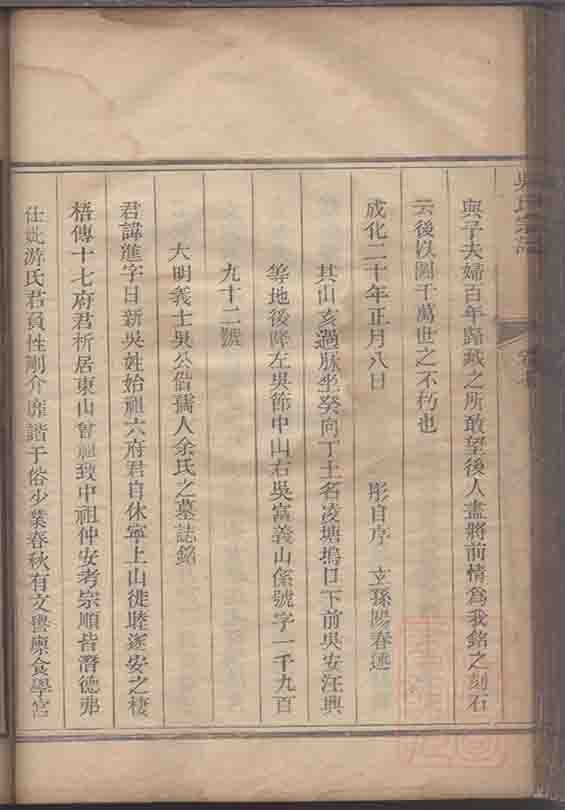 吳氏宗譜
與予夫婦百年歸藏之所敢望後人盡將前情爲我銘之刻石
云後以圖千萬世之不朽也
成化二十年正月八日 彤自序 立孫陽春述
其山亥過脉坐癸向丁土名凌塘塢口下前吳安汪興
等地後降左吳飾中山右吳富義山係號字一千九百
九十二號
大明義士吳公偕孺人余氏之墓誌銘
君諱進字日新吳姓始祖六府君自休寧上山徙睦遂安之棲
梧傳十七府君析居東山曾祖致中祖仲安考宗順皆潛德弗
仕妣游氏君貭性剛介靡諧于俗少業春秋有文譽廪食學官